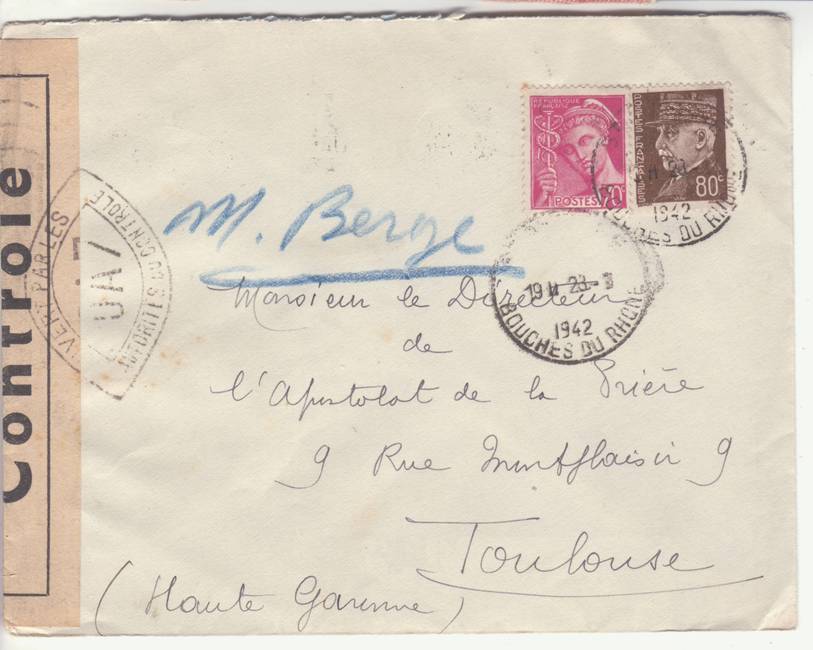 Controle
OUVERT PAR LES
AUTORITÉS DU CONTROLE
UA 7
REPUBLIQUE
FRANÇAISE
POSTES
70c
POSTES FRANÇAISES
80c
23
1942
BOUCHES DU RHONE
19 H 23-3
1942
BOUCHES DU RHONE
M. Berge
Monsieur le Directeur
de
l'Apostolat de la Prière
9 Rue Montplaisir 9
Toulouse
(Haute Garonne)